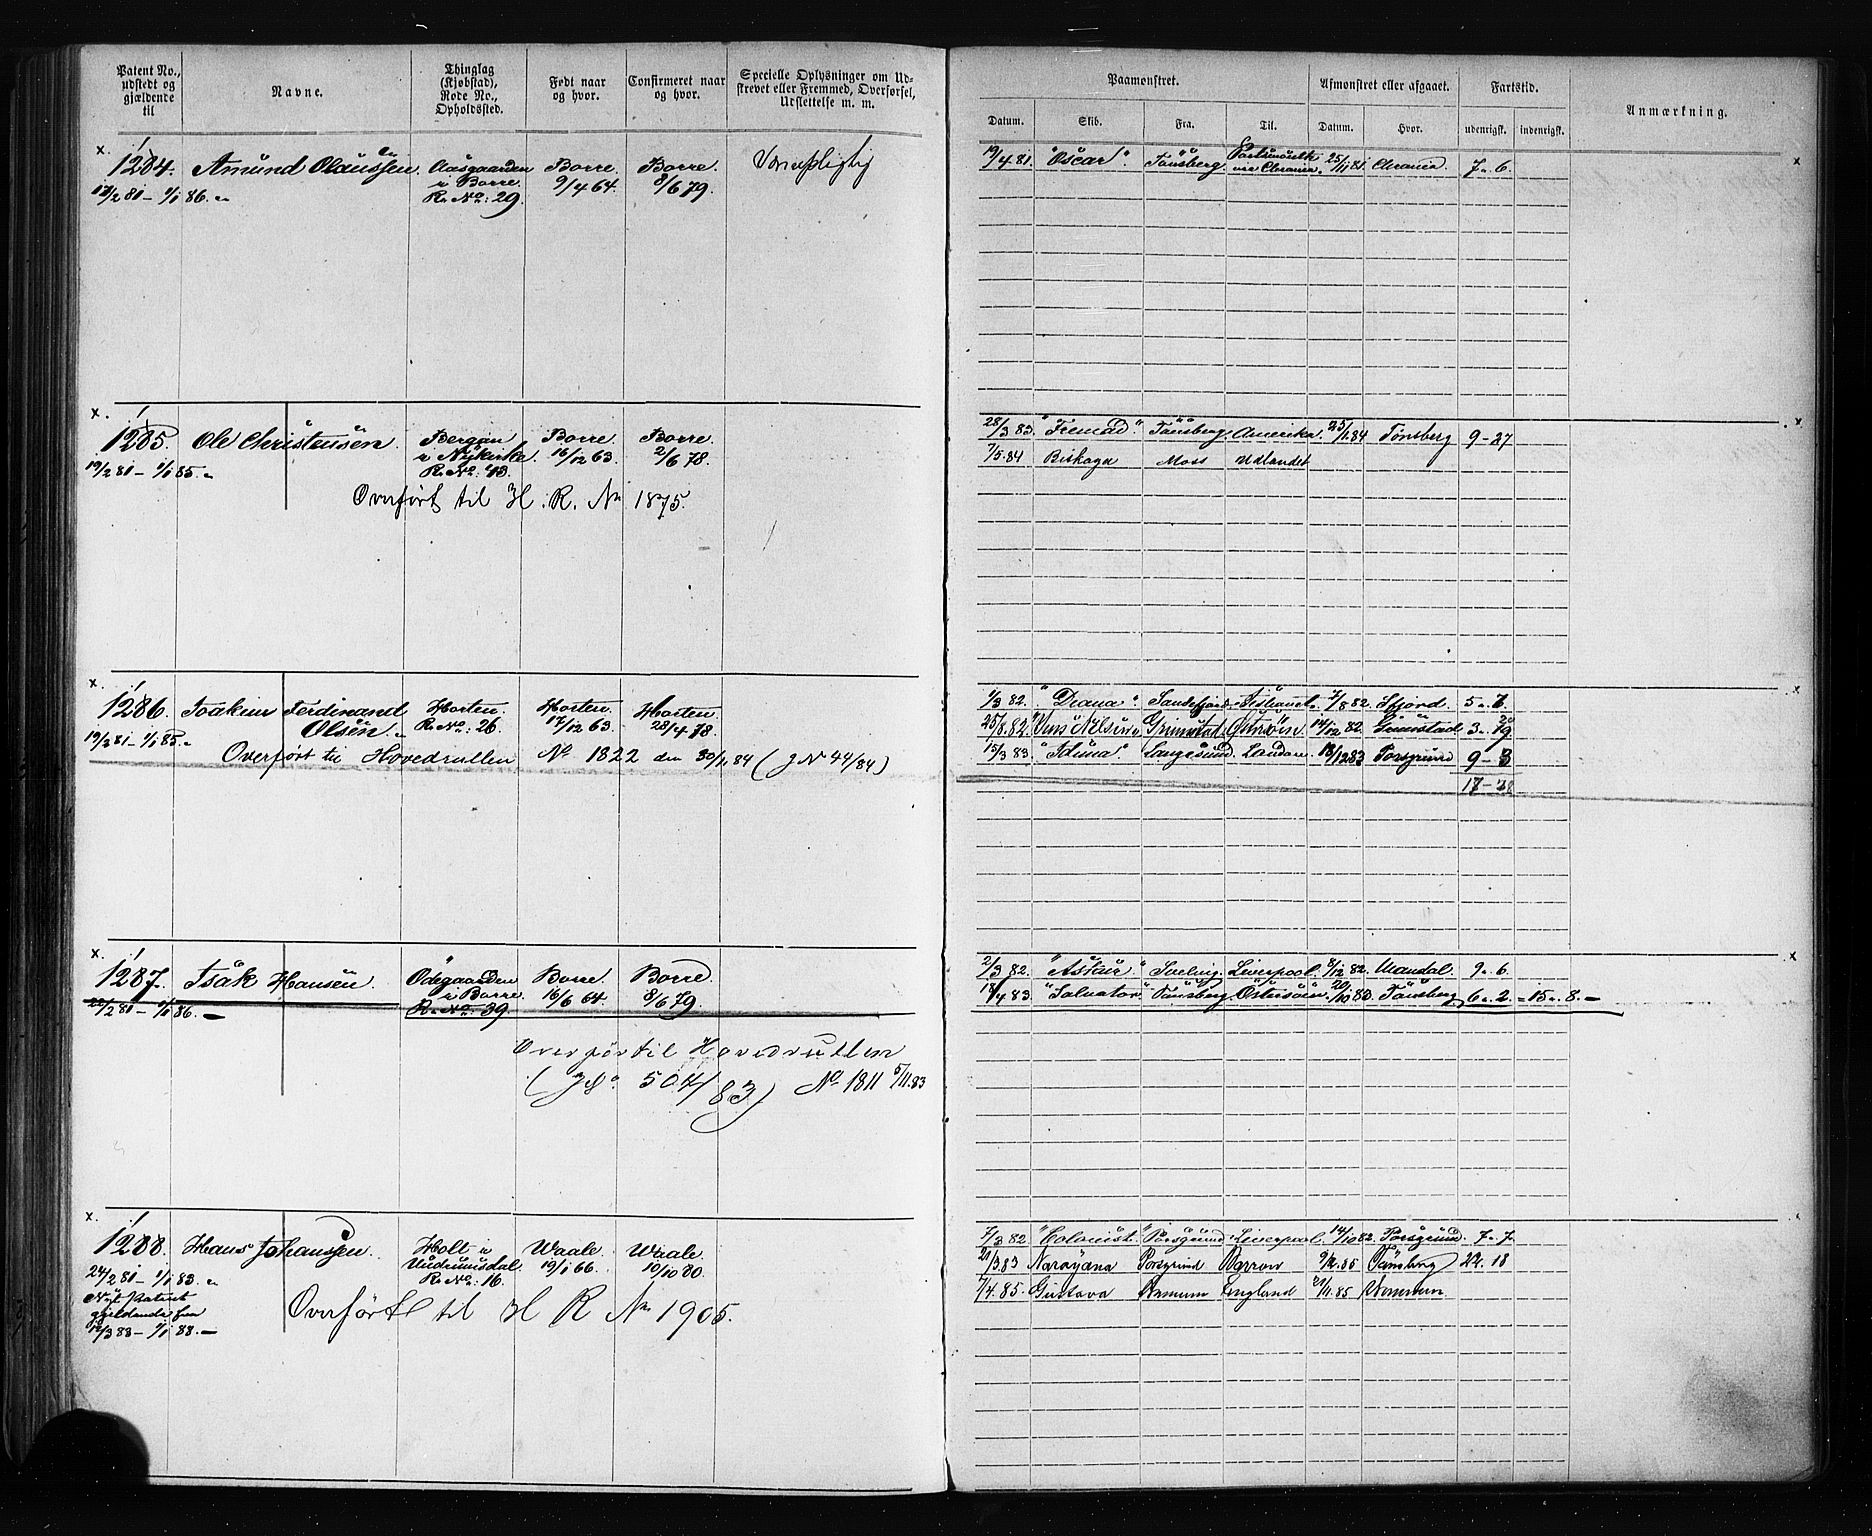 Patent No., udstedt og gjældende til
Navne.
Thinglag (Kjøbstad), Rode No., Opholdssted.
Født naar og hvor.
Confirmeret naar og hvor.
Specielle Oplysninger om Udskrevet eller Fremmed, Overførsel, Udslettelse m. m.
Paamønstret.
Afmønstret eller afgaaet.
Fartstid.
Anmærkning.
Datum. Skib. Fra. Til. Datum. Hvor. udenrigst. indenrigst.
x. 1284. Amund Olaussen. Aasgaarden Borre. Borre. Værnepligtig
i Borre. 9/4 64. 8/6 79.
R. No: 29
17/2 81 – 1/1 86.
19/4 81. "Oscar". Tønsberg. 25/11 81. 7. 6. x
x. 1285. Ole Christensen. Bergan Borre. Borre.
i Nykirke 16/12 63. 2/6 78.
19/2 81 – 1/1 85. R. No: 43.
Overført til H. R. No 1875.
28/3 83. "Fremad". Tønsberg. Amerika. 84 Tønsberg 9-27 x
7/5 84 Biskaya Moss Udlandet
x. 1286. Joakim Ferdinand Horten. Horten. Horten.
Olsen. R. No: 26. 17/12 63. 28/4 78.
19/2 81 – 1/1 85.
Overført til Hovedrullen No 1822 den 30/1 84 (J No 44/84)
1/3 82. "Diana" Sandefjord. 7/8 82. Sfjord 5. 6. x
25/8 82. Grimstad Østersøen. 14/12 82. Grimstad 3. 19
15/3 83 Langesund. London. 18/12 83 Porsgrund 9-3
17-28
x. 1287. Isak Hansen. Ødegaarden Borre. Borre.
i Borre. 16/6 64. 8/6 79.
22/2 81 – 1/1 86. R. No. 39
Overført til Hovedrullen
(J No. 504/83) No 1811 5/11.83
2/3 82. Liverpool. 8/12 82. Mandal. 9. 6. x
18/4 83. "Salvator". Tønsberg. Østersøen. 20/10 83. Tønsberg. 6. 2. = 15. 8. –
x. 1288. Hans Johanssen. Holt i Waale. Waale.
Undrumsdal. 19/1 66. 10/10 80.
24/2 81 – 1/1 83. R. No. 16.
Nyt Patent
gjeldende fra
12/3 83 – 1/1 88. –
Overført til H R No 1905.
7/3 82 "Colonist." Porsgrund Liverpool. 14/10 82. Porsgrund. 7. 7.
21/3 83 Narayana Porsgrund Barrow 9/2. 85 Tønsberg 22. 18
7/4. 85. Gustava Drammen England 21/11. 85 Drammen